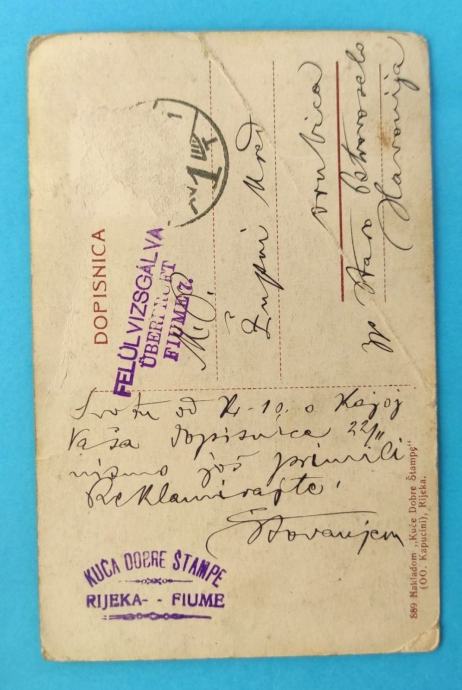 DOPISNICA
FELÜLVIZSGÁLVA
ÜBERPRÜFT
FIUME 7.
Župni Ured
Vrbica
pp Staro Petrovoselo
Slavonija
Svotu od K 10. o kojoj
Vaša dopisnica 22/11
nismo još primili
Reklamirajte!
Štovanjem
KUĆA DOBRE ŠTAMPE
RIJEKA - - FIUME
889 Nakladom „Kuće Dobre Štampe"
(OO. Kapucini), Rijeka.